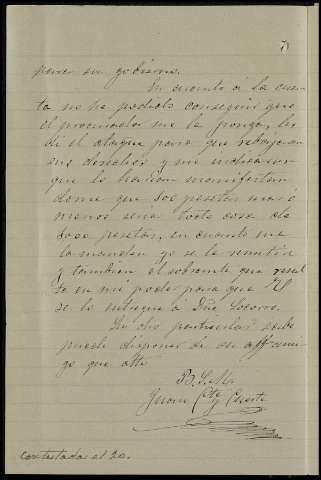 poner su gobierno.
En cuanto á la cuen-
ta no he podido conseguir que
el procurador me la ponga, les
dí el ataque para que rebajaran
sus derechos y me indicaron
que lo harían manifestan
dome que 500 pesetas mas ó
menos seria toda cosa de
3000 pesetas, en cuando me
la manden yo se la remitiré
y tambien el sobrante que resul
te en mi poder para que Vd
se lo entregue á Dña Socorro.
Sin otro particular sabe
puede disponer de su affmo ami-
go que atto
B. S. M.
Contestada el 20.